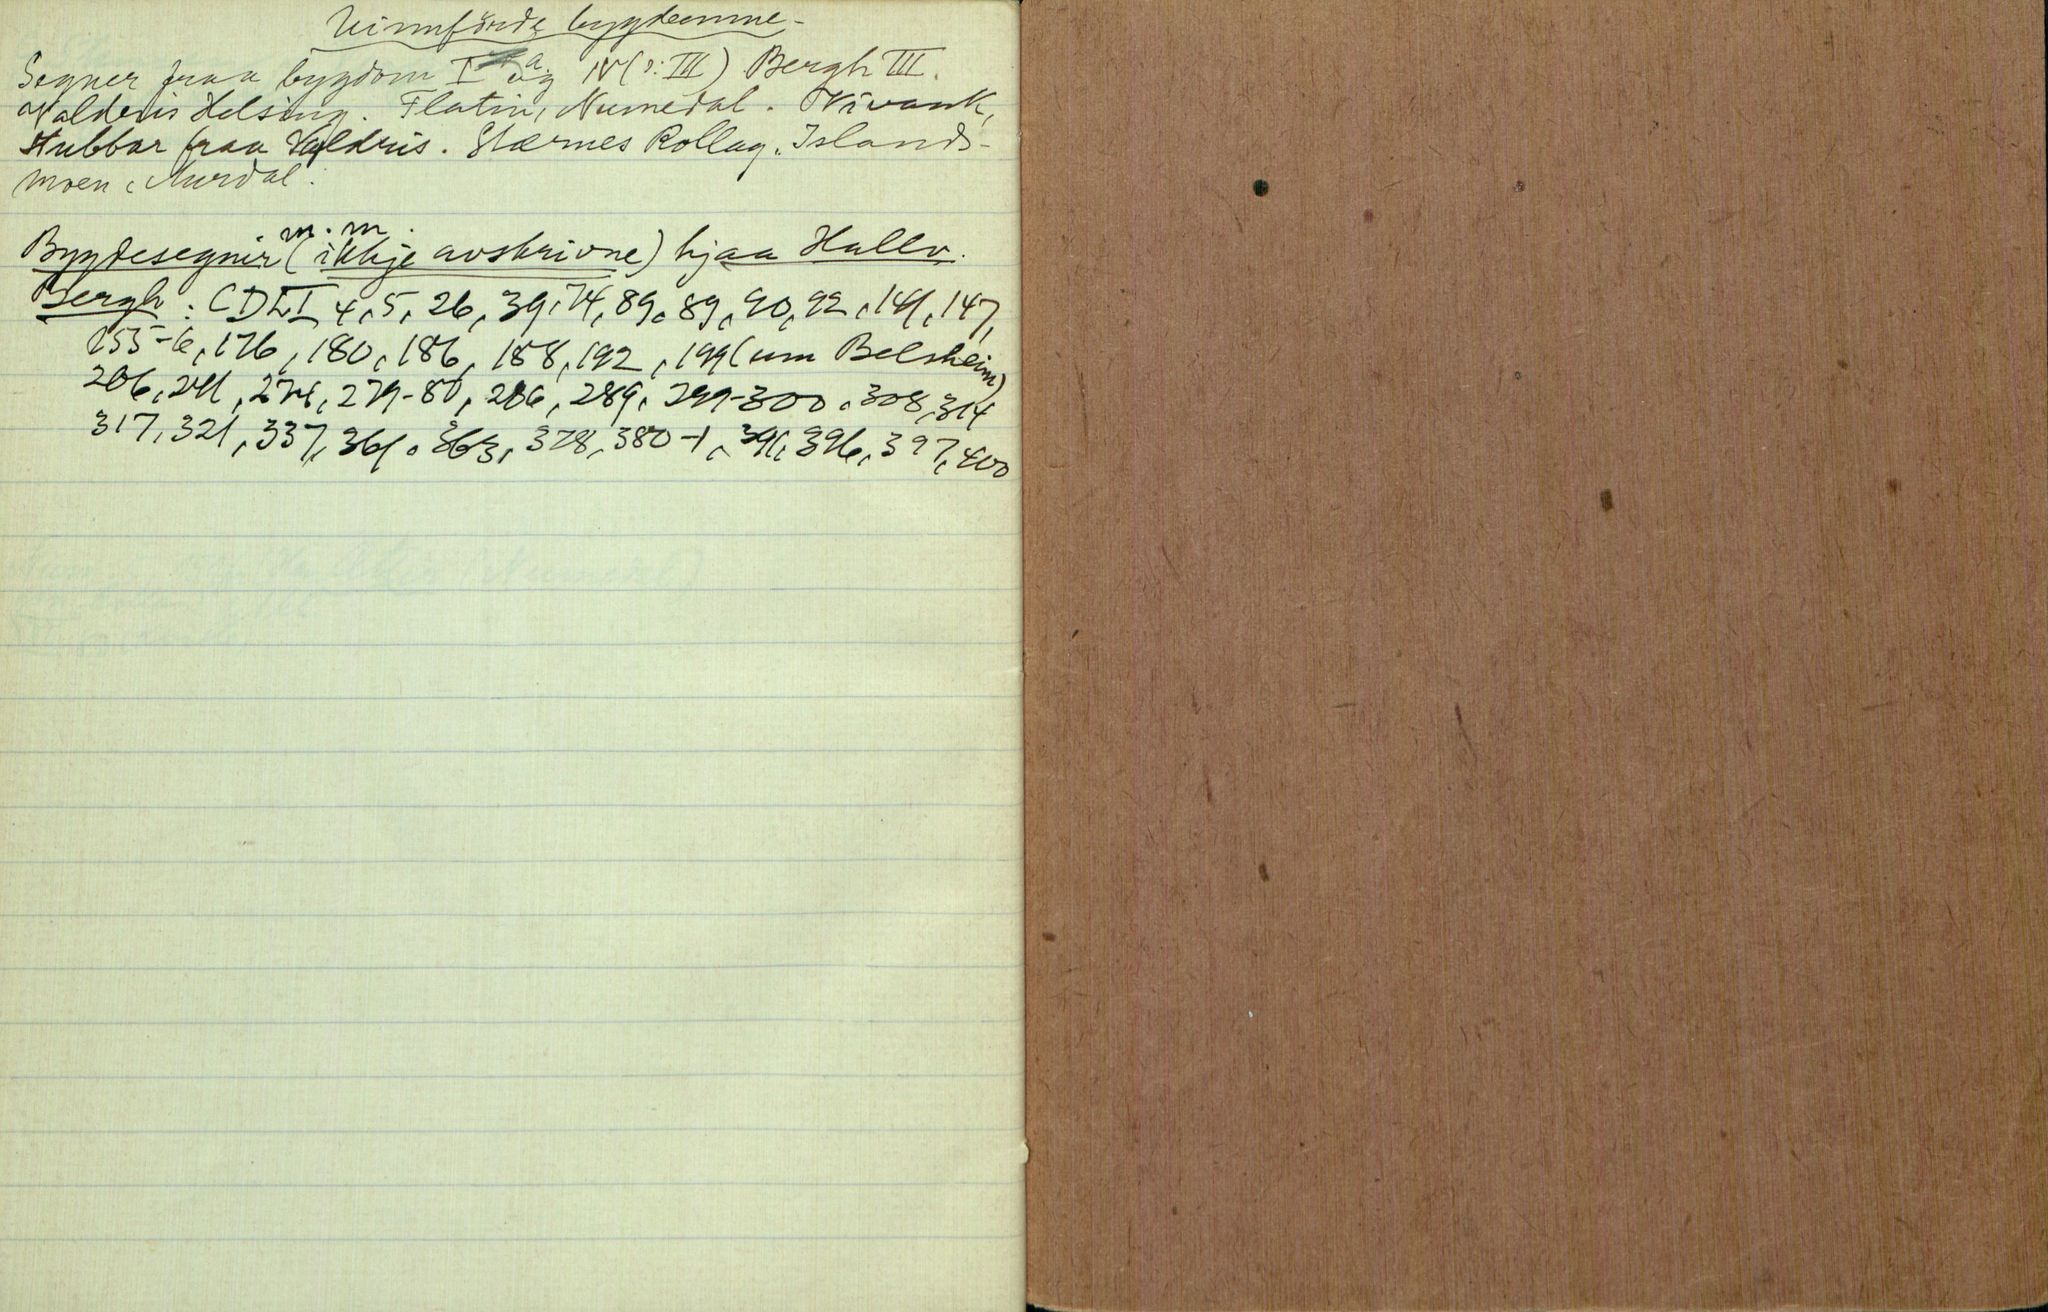 Uinnförde bygdeemne-
Segner fraa bygdom I a og IV (ɔ: III) Bergh III.
Valdris Helsing. Flatin, Numedal. Nivank,
Stubbar fraa Valdris. Stærnes Rollag. Islands-
moen, Aurdal.
m. m.
Bygdesegnir (ikkje avskrivne) hjaa Hallv.
Bergh: CDLI 4, 5, 26, 39, 74, 89, 89, 90, 92, 141, 147,
155-6, 176, 180, 186, 188, 192, 199 (um Belsheim)
206, 241, 274, 279-80, 286, 289, 299-300, 308, 314
317, 321, 337, 361, 363, 378, 380-1, 391, 396, 397, 400